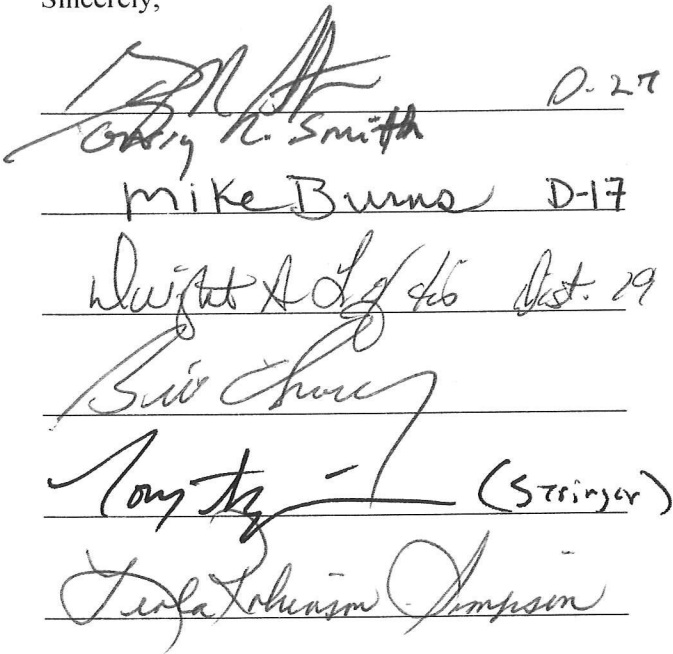 Sincerely,
D-27
Garry R. Smith
Mike Burns D-17
Dwight A Dist. 29
Bill
Tony (Stringer)
Leola Robinson Simpson